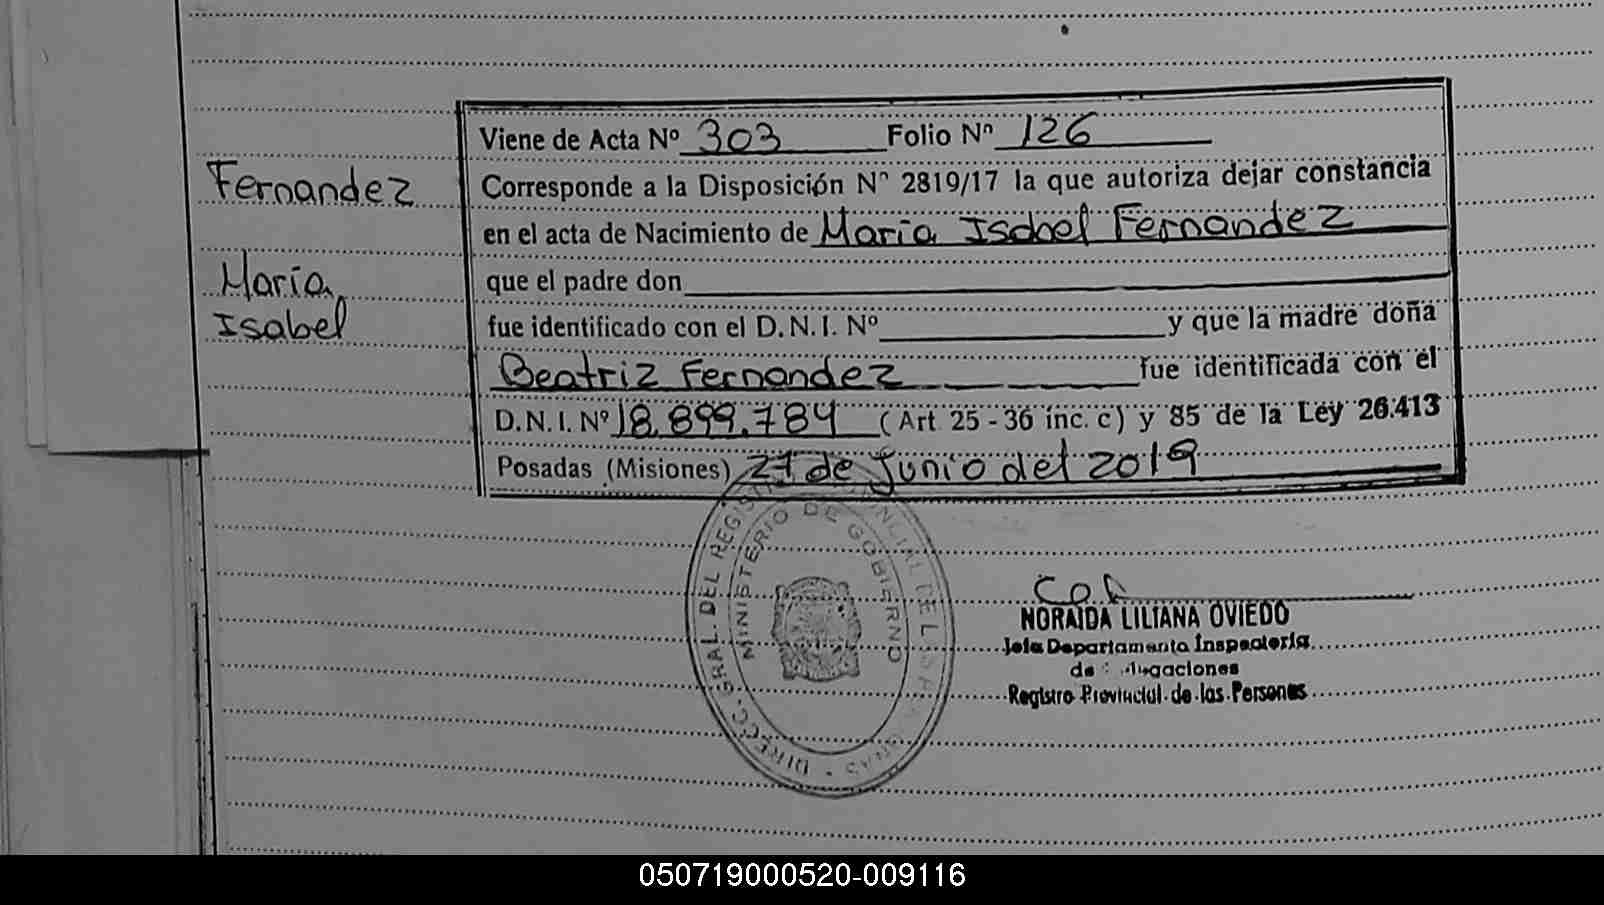 Viene de Acta Nº 303 Folio Nº 126
Fernandez
Corresponde a la Disposición Nº 2819/17 la que autoriza dejar constancia
en el acta de Nacimiento de María Isabel Fernandez
María
Isabel
que el padre don
fue identificado con el D.N.I. Nº y que la madre doña
Beatriz Fernandez fue identificada con el
D.N.I. Nº 18.899.784 (Art. 25 - 36 inc. c) y 85 de la Ley 26.413
Posadas (Misiones) 27 de Junio del 2019
DIRECC. GRAL. DEL
MINISTERIO DE GOBIERNO
NORAIDA LILIANA OVIEDO
Jefa Departamento Inspectoría
de
Registro Provincial de las Personas
050719000520-009116